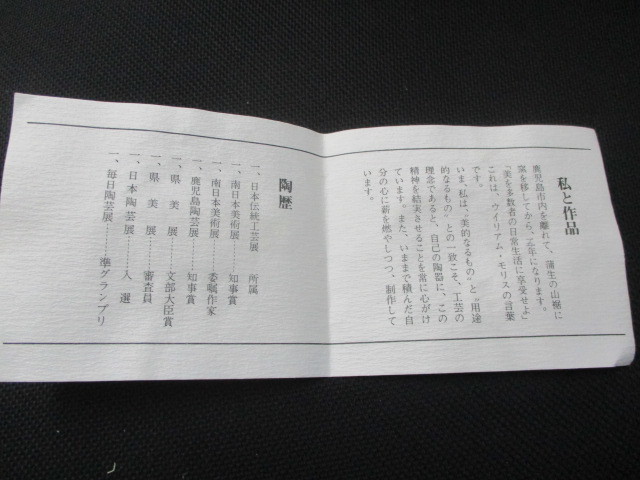 私と作品
鹿児島市内を離れて、蒲生の山裾に
窯を移してから、年になります。
「美を多数者の日常生活に享受せよ」
これは、ウイリアム・モリスの言葉
です。
いま、私は、"美的なるもの"と"用途
的なるもの"との一致こそ、工芸の
理念であると、自己の陶器に、この
精神を結実させることを常に心がけ
ています。また、いままで積んだ自
分の心に薪を燃やしつつ、制作して
います。
陶歴
一、日本伝統工芸展 所属
一、南日本美術展……知事賞
一、南日本美術展……委嘱作家
一、鹿児島陶芸展……知事賞
一、県美展……文部大臣賞
一、県美展……審査員
一、日本陶芸展……入選
一、毎日陶芸展……準グランプリ